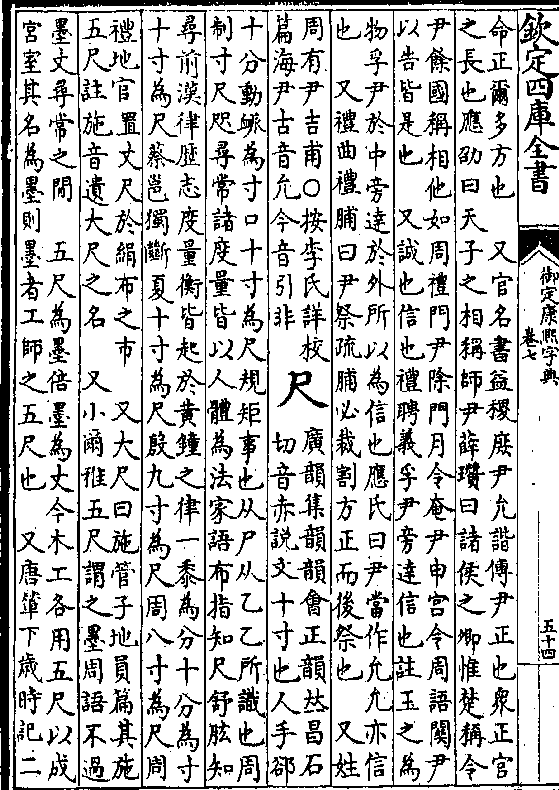 欽定四庫全書
御定康熙字典
卷七
五十四
命正爾多方也　又官名書益稷庶尹允諧傳尹正也衆正官
之長也應劭曰天子之相稱師尹薛瓚曰諸侯之卿惟楚稱令
尹餘國稱相他如周禮門尹除門月令奄尹申宮令周語關尹
以告皆是也　又誠也信也禮聘義孚尹旁達信也註玉之為
物孚尹於中旁達於外所以為信也應氏曰尹當作允允亦信
也　又禮曲禮脯曰尹祭疏脯必裁割方正而後祭也　又姓
周有尹吉甫○按李氏詳校
篇海尹古音允今音引非
尺
廣韻集韻韻會正韻𠀤昌石
切音赤説文十寸也人手郤
十分動脈為寸口十寸為尺規矩事也从尸从乙乙所識也周
制寸尺咫尋常諸度量皆以人體為法家語布指知尺舒肱知
尋前漢律歴志度量衡皆起於黃鐘之律一黍為分十分為寸
十寸為尺蔡邕獨斷夏十寸為尺殷九寸為尺周八寸為尺周
禮地官置丈尺於絹布之市　又大尺曰施管子地員篇其施
五尺註施音遺大尺之名　又小爾雅五尺謂之墨周語不過
墨丈尋常之間　五尺為墨倍墨為丈今木工各用五尺以成
宮室其名為墨則墨者工師之五尺也　又唐輦下歲時記二